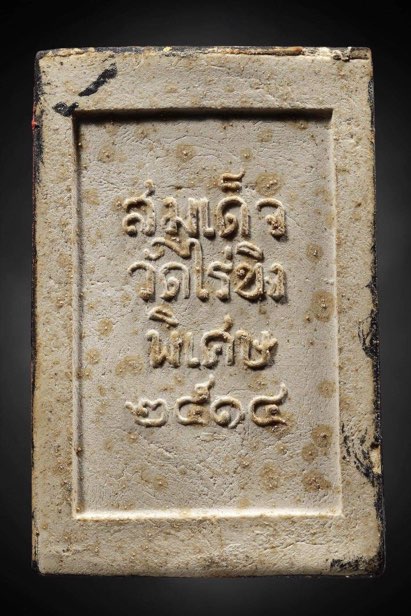 สมเด็จ
วัดไร่ขิง
พิเศษ
๒๕๑๔